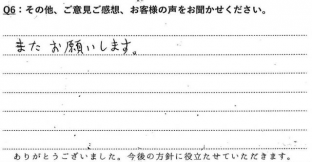 Q6：その他、ご意見ご感想、お客様の声をお聞かせください。
また お願いします。
ありがとうございました。今後の方針に役立たせていただきます。